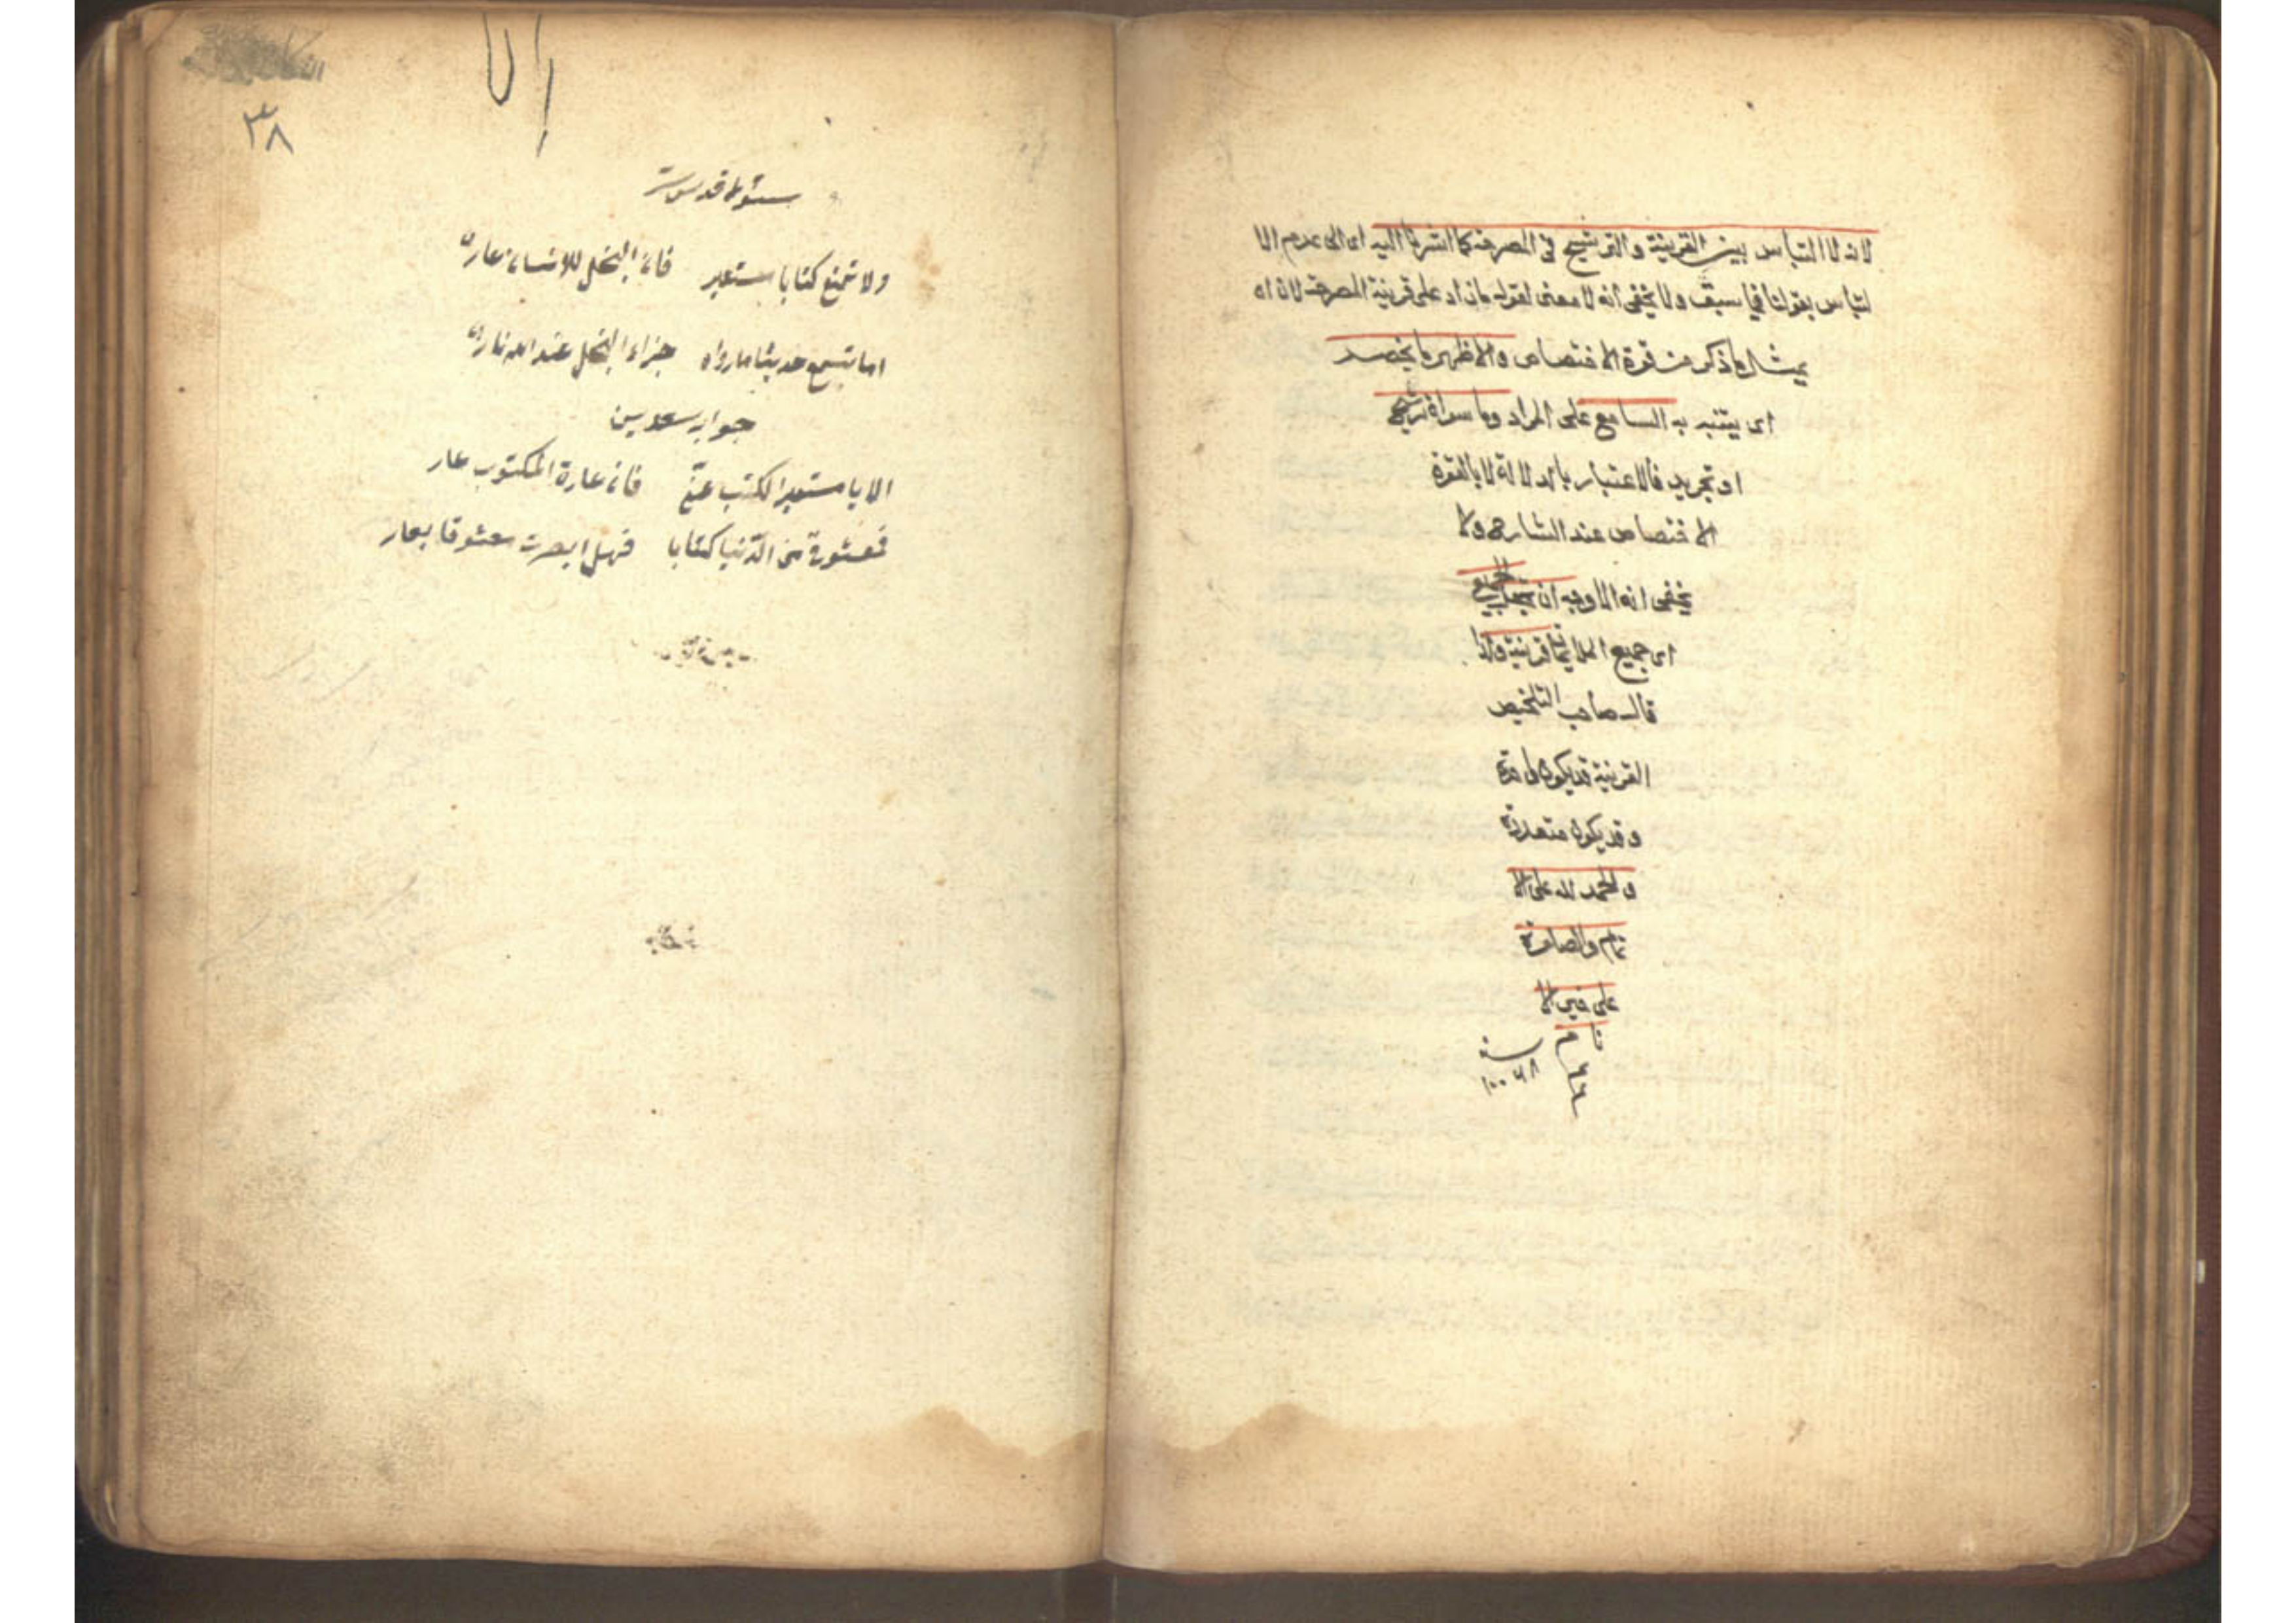 لانه لا التباس بين القرينة والترشيح في المصرحة كما اشرنا اليه اى الى عدم الا
لتباس بقولنا فيما سبق ولا يخفى أنه لا معنى لقوله ما زاد على قرينة المصرحة لان اه
يمثل ما ذكر من قوة الاختصاص والاظهر ما يخصه
اى يتنبه به السامع على المراد وما سواه ترشيح
او تجريد فالاعتبار بالدلالة لا بالقوة
الاختصاص عند الشارح ولا
يخفى انه الاوجه ان يجعل الجميع
اى جميع الملايمات قرينة ولذا
قال صاحب التلخيص
القرينة قد يكون واحدة
وقد يكون متعددة
والحمد لله على الا
تمام والصلوة
على خير الا
نام
سنة
٣٨
ولا تمنع كتابا مستعير فان البخل للانسان عار
اما تسمع حديثا ما رواه جزاء البخل عند الله نار
جواب سعدين
الا يا مستعير الكتب عنّي فان عارة المكتوب عار
فمعشوق من الدّنيا كتابا فهل ابصرت معشوقا يعار